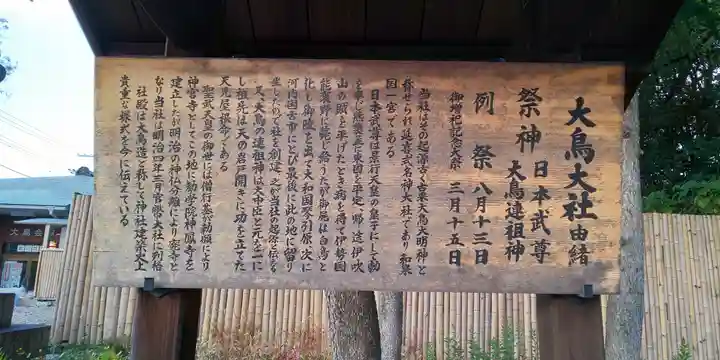 大鳥大社由緒
祭神 日本武尊
大鳥連祖神
例祭 八月十三日
御増祀記念大祭 三月十五日
当社はその起源古く古来大鳥大明神と
尊せられ延喜式名神大社であり和泉
国一宮である
日本武尊は景行天皇の皇子にして勅
を奉じ熊襲並に東国を平定帰途伊吹
山の賊を平げたとき病を得て伊勢国
能褒野に薨じ給うたが御屍は白鳥と
化し御陵を出で大和国琴引原次に
河内国古市にとび最後に此の地に留り
ましたので社を創建之が当社の起源と伝える
又大鳥の連祖神は大中臣と元を一に
し祖先は天の岩戸開きに功を立てた
天児屋根命である
聖武天皇の御世には僧行基が勅願により
神宮寺としてこの地に勧学院神鳳寺を
建立したが明治の神仏分離により廃寺と
なり当社は明治四年五月官幣大社に列格
社殿は大鳥造と称して神社建築史上
貴重な様式を今に伝えている
大鳥